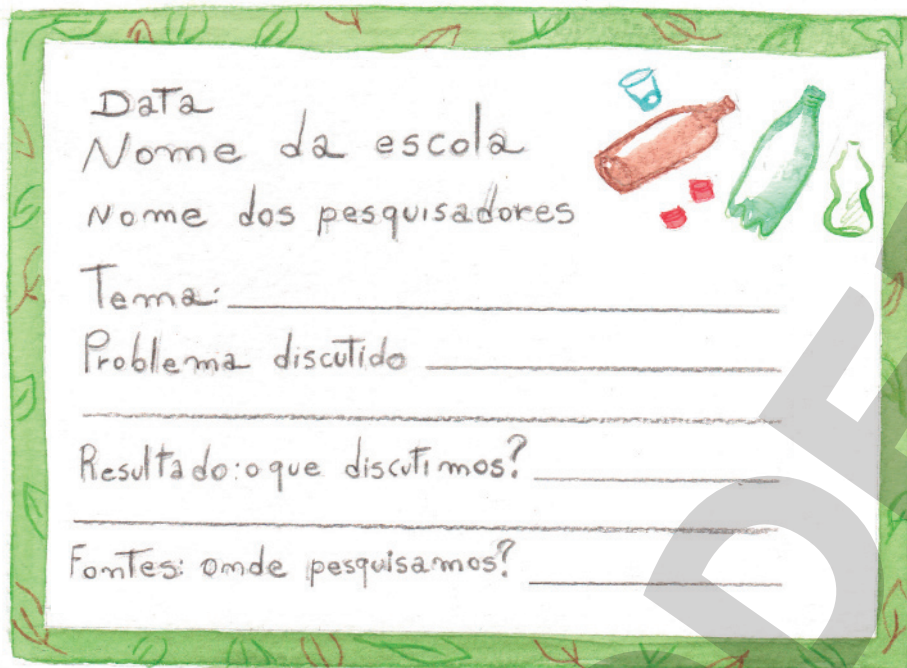 Data
Nome da escola
Nome dos pesquisadores
Tema:
Problema discutido
Resultado: o que discutimos?
Fontes: onde pesquisamos?